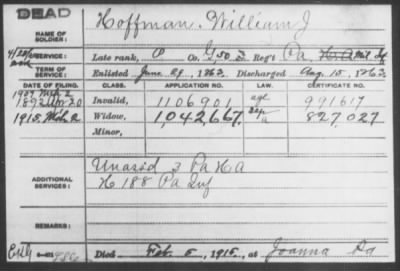 DEAD
NAME OF SOLDIER: Hoffman, William J
SERVICE: Late rank, P Co. G 50 3 Reg't Pa.
TERM OF SERVICE: Enlisted June 29, 1863. Discharged Aug. 15, 1863.
DATE OF FILING. CLASS. APPLICATION NO. LAW. CERTIFICATE NO.
1892 Apr 20 Invalid, 1106901 991617
1915. Mch 2 Widow, 1,042,667. 827,027
Minor,
ADDITIONAL SERVICES: Unasgd 3 Pa H A
H 188 Pa Inf
REMARKS:
Died Feb. 5, 1915, at Joanna Pa